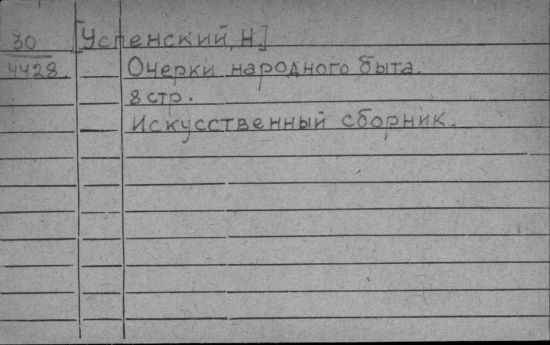 30 [Успенский, Н.]
4428 Очерки народного быта.
8 стр.
Искусственный сборник.